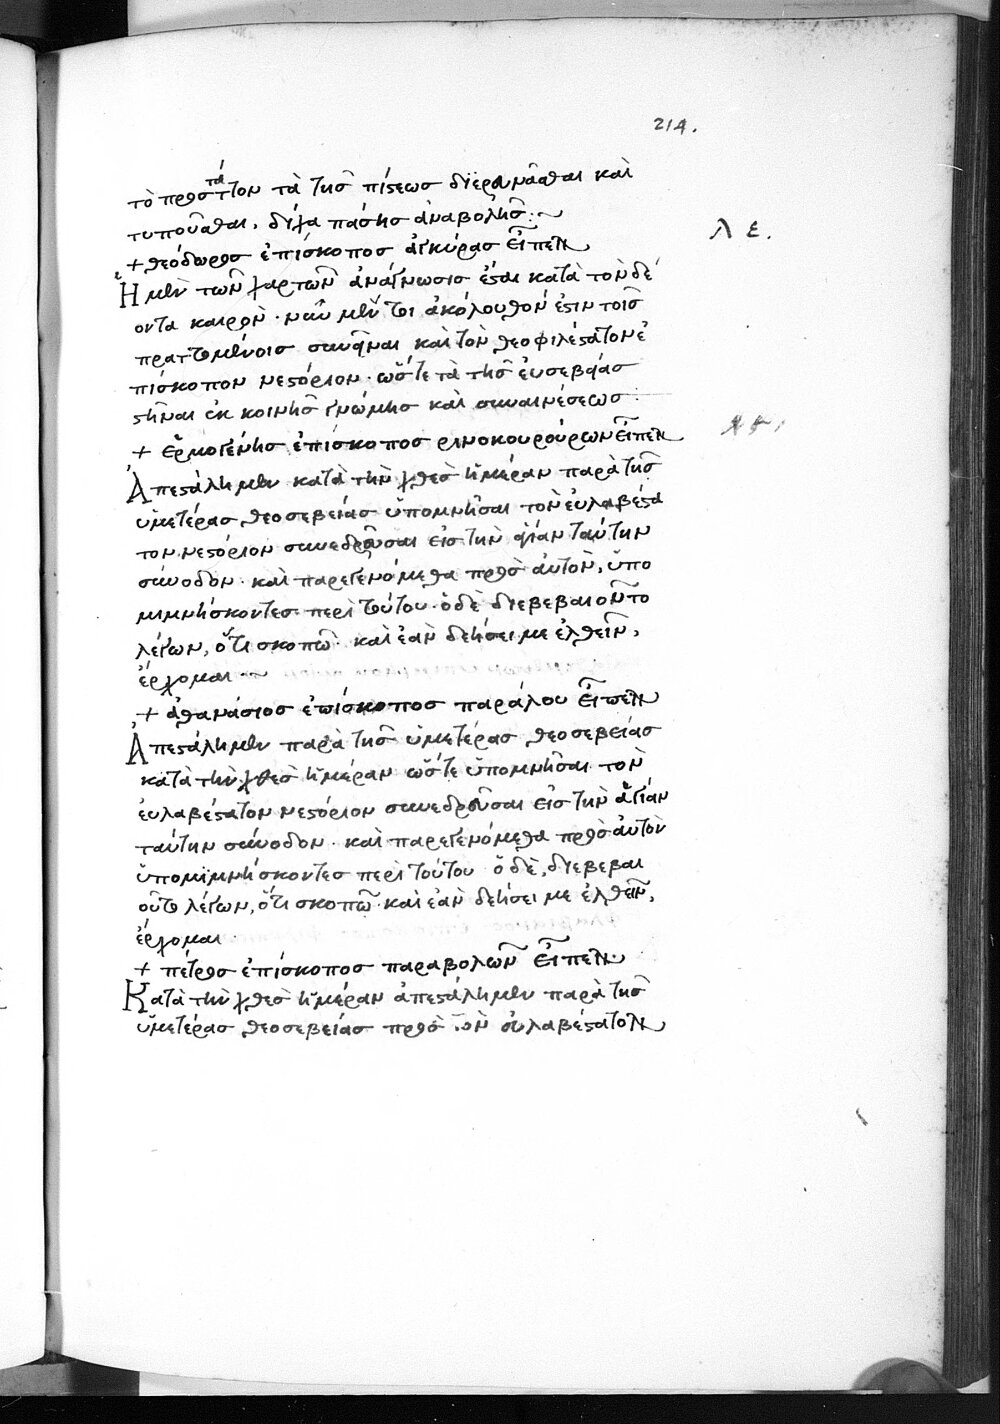 214.
τὸ προστάττον τὰ τῆς πίστεως διερευνᾶσθαι καὶ
τυποῦσθαι, δίχα πάσης ἀναβολῆς:~
λε.
+ θεόδωρος ἐπίσκοπος ἀγκύρας εἶπεν
Ἡ μὲν τῶν χαρτῶν ἀνάγνωσις ἔσται κατὰ τὸν δέ
οντα καιρὸν · νῦν μέν τοι ἀκόλουθόν ἐστιν τοῖς
πραττομένοις συνεῖναι καὶ τὸν θεοφιλέστατον ἐ
πίσκοπον νεστόριον · ὥστε τὰ τῆς εὐσεβείας
στῆναι ἐκ κοινῆς γνώμης καὶ συναινέσεως :
λϛ.
+ ἑρμογένης ἐπίσκοπος ρινοκουρούρων εἶπεν
Ἀπεστάλημεν κατὰ τὴν χθὲς ἡμέραν παρὰ τῆς
ὑμετέρας θεοσεβείας ὑπομνῆσαι τὸν εὐλαβέστα
τον νεστόριον συνεδρεῦσαι εἰς τὴν ἁγίαν ταύτην
σύνοδον · καὶ παρεγενόμεθα πρὸς αὐτὸν, ὑπο
μιμνήσκοντες περὶ τούτου · ὁ δὲ διεβεβαιοῦτο
λέγων, ὅτι σκοπῶ · καὶ ἐὰν δεήσει με ἐλθεῖν,
ἔρχομαι ~
+ ἀθανάσιος ἐπίσκοπος παράλου εἶπεν
Ἀπεστάλημεν παρὰ τῆς ὑμετέρας θεοσεβείας
κατὰ τὴν χθὲς ἡμέραν ὥστε ὑπομνῆσαι τὸν
εὐλαβέστατον νεστόριον συνεδρεῦσαι εἰς τὴν ἁγίαν
ταύτην σύνοδον · καὶ παρεγενόμεθα πρὸς αὐτὸν
ὑπομιμνήσκοντες περὶ τούτου · ὁ δὲ, διεβεβαι
οῦτο λέγων, ὅτι σκοπῶ · καὶ ἐὰν δεήσει με ἐλθεῖν,
ἔρχομαι ·
+ πέτρος ἐπίσκοπος παραβολῶν εἶπεν·
Κατὰ τὴν χθὲς ἡμέραν ἀπεστάλημεν παρὰ τῆς
ὑμετέρας θεοσεβείας πρὸς τὸν εὐλαβέστατον